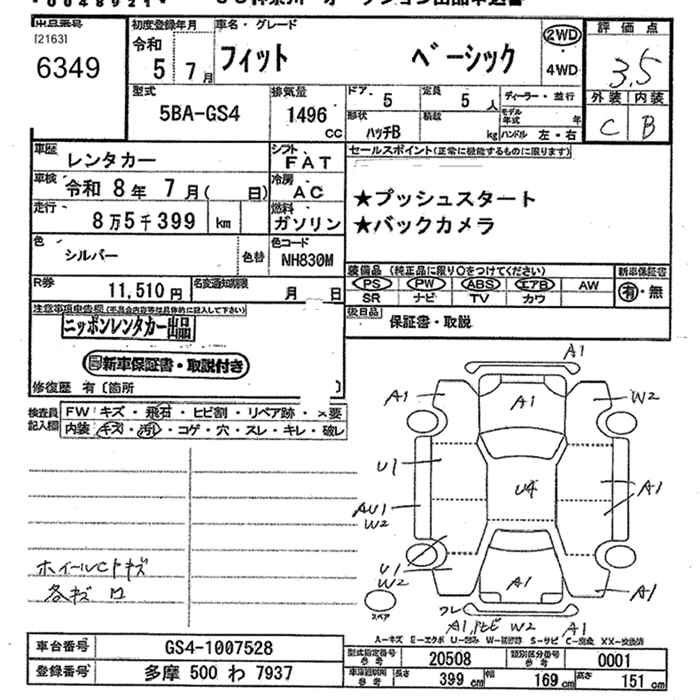 *0048921*
出品番号 初度登録年月 車名・グレード 評価点
[2163]
6349
令和 5年 7月 フィット ベーシック 2WD ・ 4WD 3.5
型式 5BA-GS4 排気量 1496 CC
ドア 5 定員 5 人 ディーラー・並行
形状 ハッチB 積載 kg モデル年式 年 ハンドル 左・右
外装 内装
C B
車歴 レンタカー シフト FAT
セールスポイント(正常に機能するものに限ります)
車検 令和 8年 7月( 日) 冷房 AC
★プッシュスタート
走行 8万5千399 km 燃料 ガソリン
★バックカメラ
色 シルバー 色替 色コード NH830M
装備品(純正品に限り○をつけてください) 新車保証書
R券 11,510円 名変通知期限 月 日
PS PW ABS エアB AW 有・無
SR ナビ TV カワ
注意事項申告欄
ニッポンレンタカー出品
後日品 保証書・取説
新車保証書・取説付き
修復歴 有〔箇所 〕
検査員記入欄 FW キズ・飛石・ヒビ割・リペア跡・×要
内装 キズ・汚・コゲ・穴・スレ・キレ・破レ
A1
A1 A1 W2
U1 U4 A1
AU1
W2
U1
W2 A1 A1
スペア
A1 W2 A1
ホイールCトキズ
A-キズ E-エクボ U-凹み S-サビ XX-交換済
車台番号 GS4-1007528
型式指定番号 参考 20508 類別区分番号 参考 0001
登録番号 多摩 500 わ 7937
参考 長さ 399 cm 幅 169 cm 高さ 151 cm